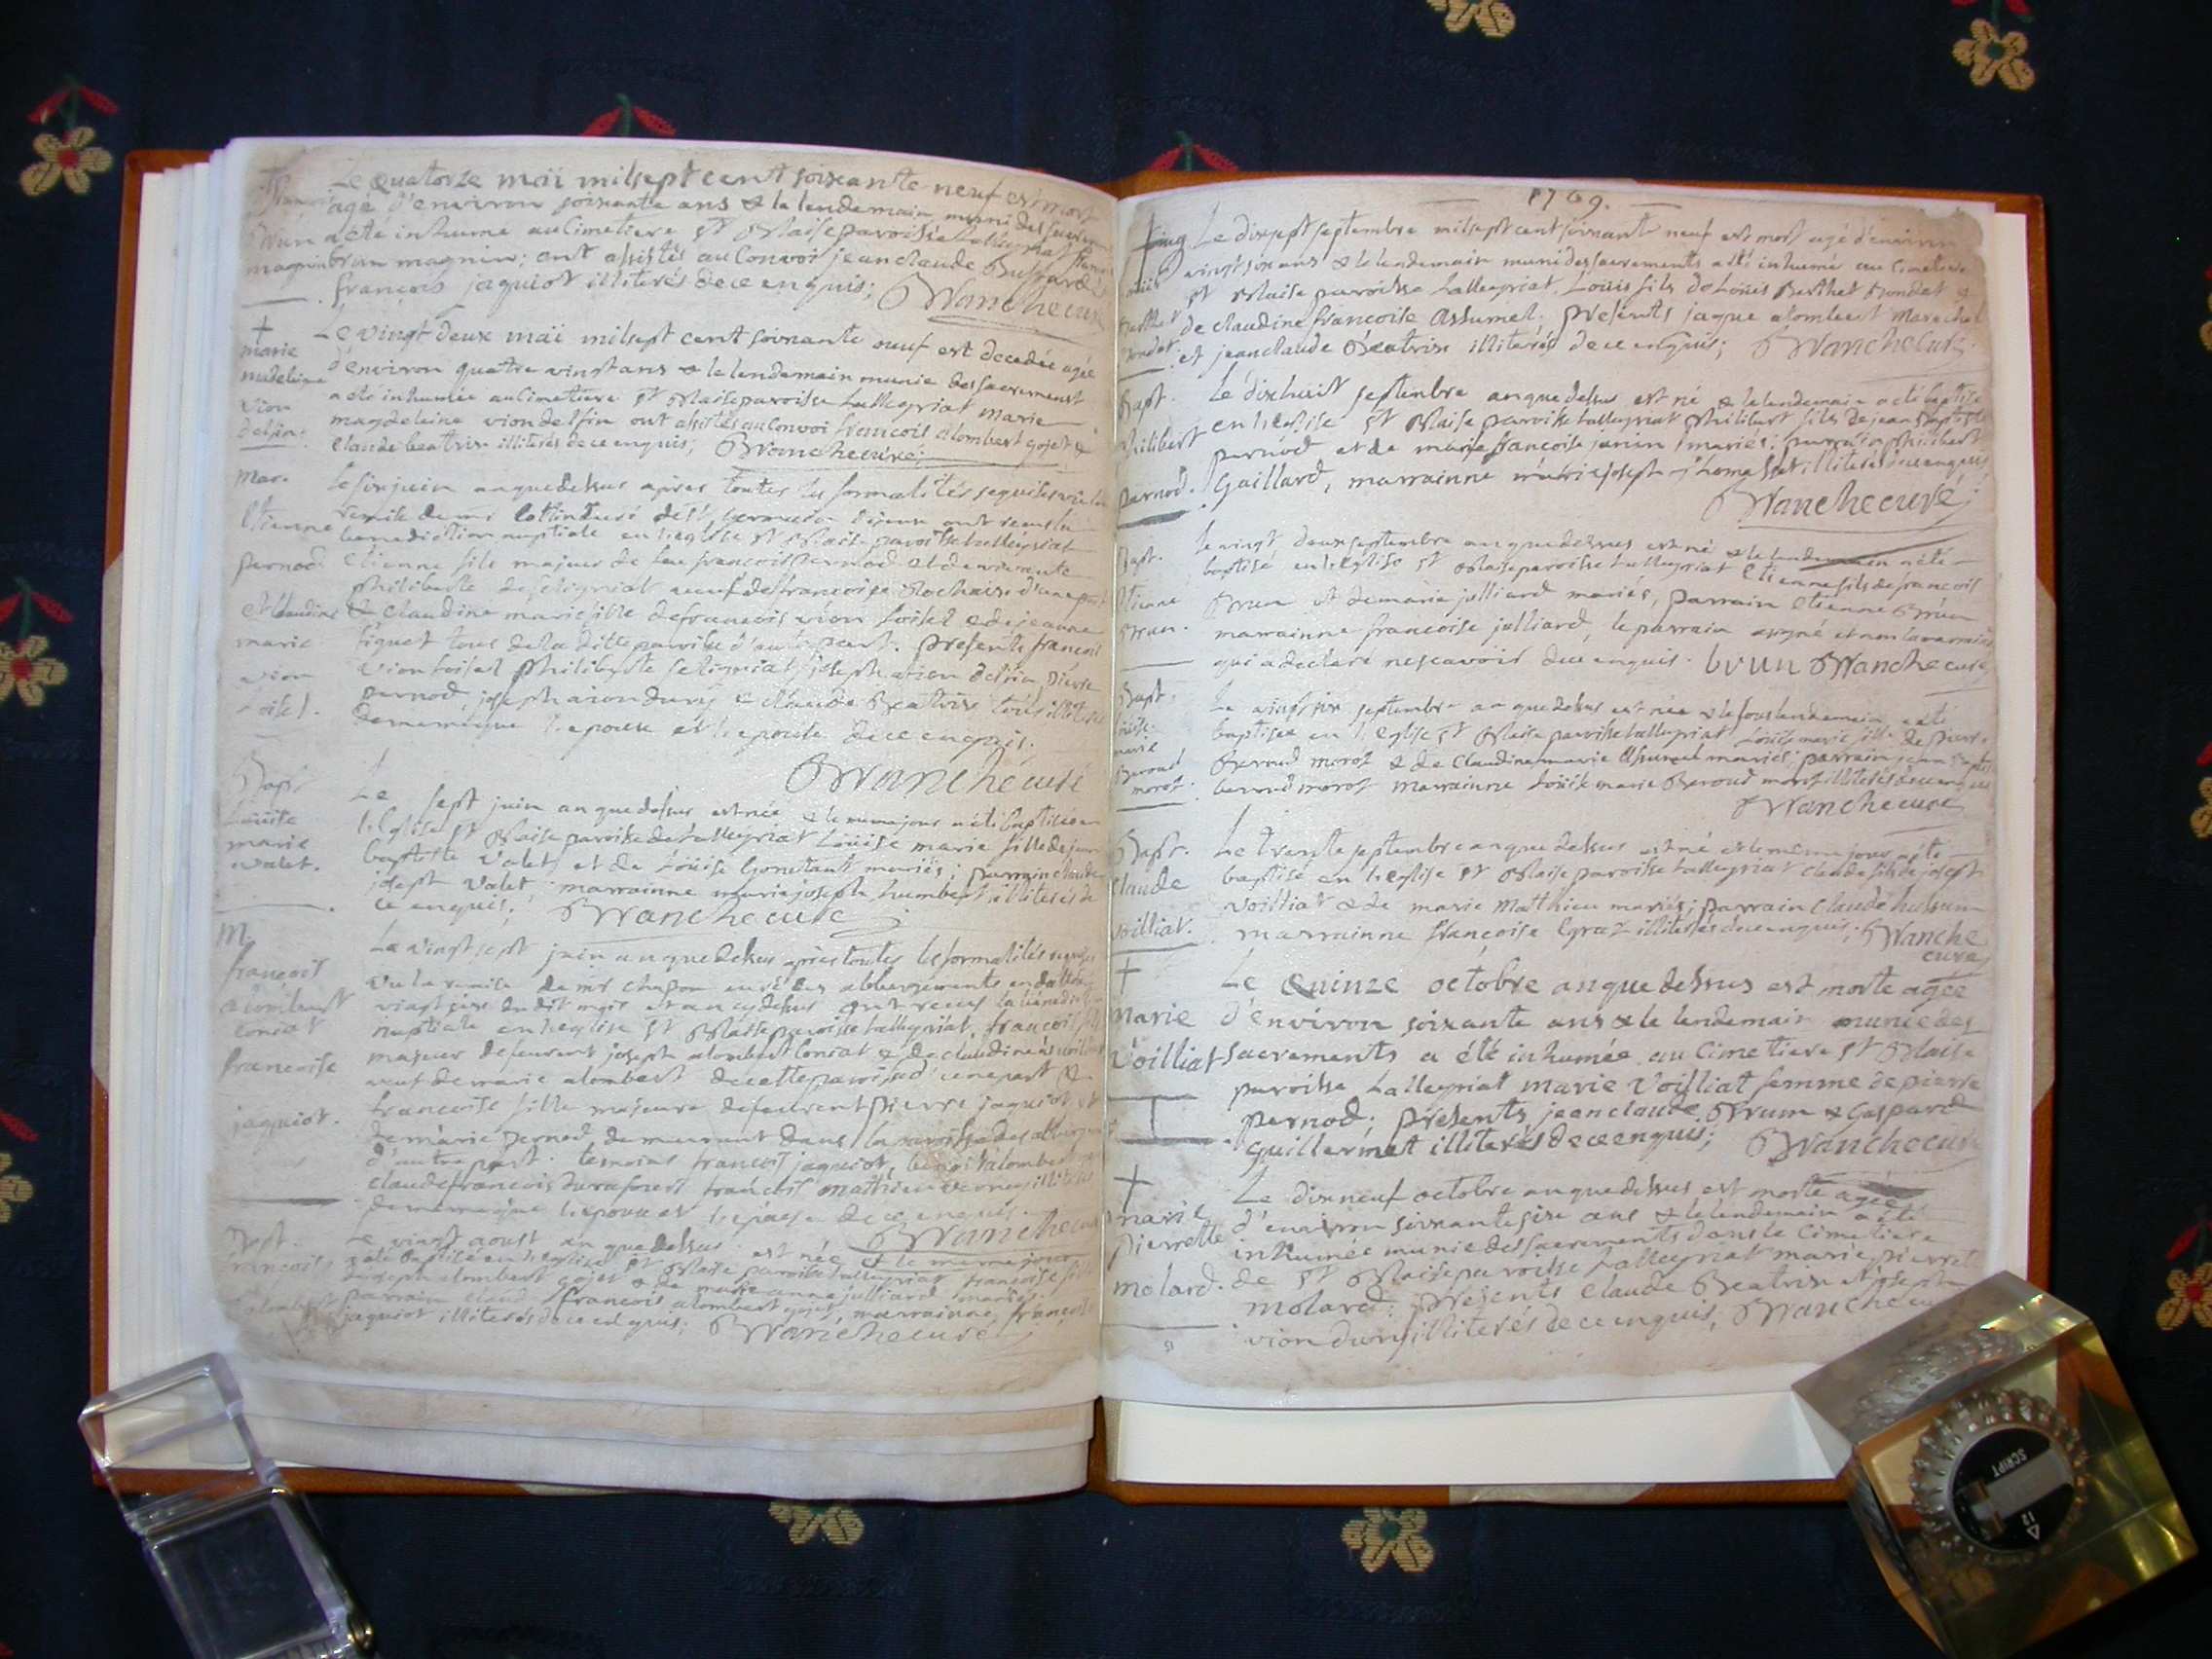 Le quatorze maii mil sept cent soixante neuf est mort
agé d'environ soixante ans & le lendemain muni des sacremens
Brun a été inhumé au Cimetiere St Blaise paroisse Lalleyriat
magnin brun magnin; ont assistés au Convoi jean claude Buffard
françois jaquiot illiterés de ce enquis; Blanche curé
+
Le vingt deux maii mil sept cent soixante neuf est decedée agée
marie
madeleine d'environ quatre vingt ans & le lendemain munie des sacrements
vion a été inhumée au Cimetiere St Blaise paroisse Lalleyriat marie
delfin. magdeleine vion delfin ont assistés au Convoi francois alombert gojet &
claude beatrix illiterés de ce enquis; Blanche curé;
mar. Le six juin an que dessus apres toutes les formalités requises vu la
remise de mr ont receu la
Etienne benediction nuptiale en l'eglise St Blaise paroisse Lalleyriat
pernod Etienne fils majeur de feu francois Pernod et de vivante
philiberte veuf de francoise d'une part
et Claudine & Claudine marie fille de francois vion loisel & de jeanne
marie figuet tous de la ditte paroisse d'autre part. presents francois
vion vion loisel philiberte joseph vion delfin, pierre
loisel. pernod, joseph vion dury & claude Beatrix tous illiterés
de meme que l'epoux et l'epouse de ce enquis.
Blanche curé
Bapt. Le sept juin an que dessus est née & le meme jour a été baptisée en
Louise l'Eglise St Blaise paroisse de Lalleyriat Louise marie fille de jean
marie baptiste Valet et de Louise mariés; parrain claude
valet. joseph Valet marrainne marie josephe humbert illiterés de
ce enquis; Blanche curé
M. Le vingt sept juin an que dessus apres toutes les formalités requises
françois vu la remise de mr Chapon curé des abbergements en datte du
alombert vingt six du dit mois et an cy dessus ont receu la benediction
coniat nuptiale en l'eglise St Blaise paroisse Lalleyriat, francois fils
francoise majeur de feu joseph alombert coniat & de claudine
veuf de marie alombert de cette paroisse d'une part &
francoise fille majeure de feu pierre jaquiot et
jaquiot. de marie pernod, demeurant dans la paroisse des abbergements
d'autre part. temoins francois jaquiot, alombert
claude francois francois mathieu illiterés
de meme que l'epoux et l'epouse de ce enquis. Blanche curé
Bapt. Le vingt aoust an que dessus est née & le meme jour
francoise a été baptisée en l'eglise St Blaise paroisse Lalleyriat francoise fille
de joseph alombert gojet & de marie anne julliard mariés
alombert parrain claude francois alombert gojet, marrainne, francoise
jaquiot illiterés de ce enquis; Blanche curé
1769.
+ Le dix sept septembre mil sept cent soixante neuf est mort agé d'environ
vingt six ans & le lendemain muni des sacrements a été inhumé au Cimetiere
St Blaise paroisse Lalleyriat, Louis fils de Louis Berthet Bondet &
Berthet de claudine francoise Assumel. presents jaque alombert Marechal
Bondet. et jean claude Beatrix illiterés de ce enquis; Blanche curé.
Bapt. Le dix huit septembre an que dessus est né & le lendemain a été baptisé
philibert en l'eglise St Blaise paroisse Lalleyriat philibert fils de jean baptiste
pernod et de marie francoise janin mariés; parrain philibert
pernod. Gaillard, marrainne marie joseph illiterés de ce enquis
Blanche curé;
Bapt. Le vingt deux septembre an que dessus est né & le lendemain a été
Etienne baptisé en l'eglise St Blaise paroisse Lalleyriat Etienne fils de francois
Brun et de marie julliard mariés, parrain Etienne Brun
brun. marrainne francoise julliard, le parrain a signé et non la marrainne
qui a declaré ne scavoir de ce enquis. brun Blanche curé
Bapt. Le vingt six septembre an que dessus est née & le sous lendemain a été
Louise baptisée en l'eglise St Blaise paroisse Lalleyriat Louise marie fille de pierre
marie
Beroud Beroud morot & de Claudine marie Assumel mariés; parrain jean baptiste
morot. beroud morot marrainne Louise marie Beroud morot illiterés de ce enquis
Blanche curé
Bapt. Le trente septembre an que dessus est né et le même jour a été
Claude baptisé en l'eglise St Blaise paroisse Lalleyriat Claude fils de joseph
Voilliat & de marie Matthieu mariés; parrain Claude
voilliat. marrainne françoise illiterés de ce enquis; Blanche
curé
+ Le quinze octobre an que dessus est morte agée
Marie d'environ soixante ans & le lendemain munie des
Voilliat sacrements a été inhumée au Cimetiere St Blaise
paroisse Lalleyriat marie Voilliat femme de pierre
pernod; présents jean claude Brun & Gaspard
Guillermet illiterés de ce enquis; Blanche curé
+ Le dix neuf octobre an que dessus est morte agée
marie d'environ soixante six ans & le lendemain a été
pierrette inhumée munie des sacrements dans le Cimetiere
molard. de St Blaise paroisse Lalleyriat marie pierrette
molard; présents Claude Beatrix & joseph
vion dury illiterés de ce enquis, Blanche curé
SCRIPT
12